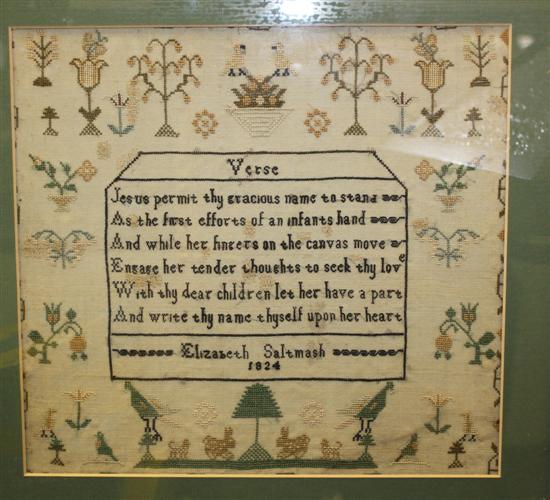 Verse
Jesus permit thy gracious name to stand
As the first efforts of an infants hand
And while her fingers on the canvas move
Engage her tender thoughts to seek thy love
With thy dear children let her have a part
And write thy name thyself upon her heart
Elizabeth Saltmash
1824